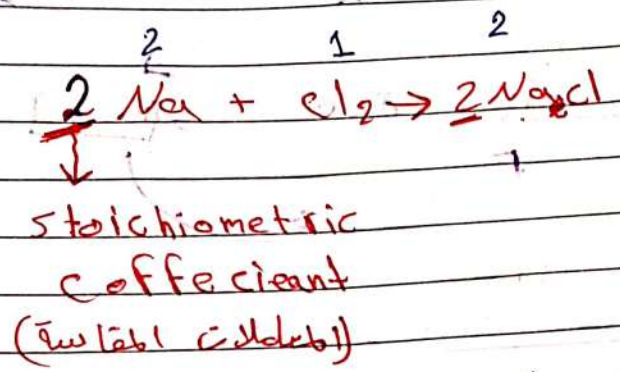 2 1 2
2 Na + Cl₂ → 2 NaCl
stoichiometric
cofficieant
(المعاملات المقاسة)